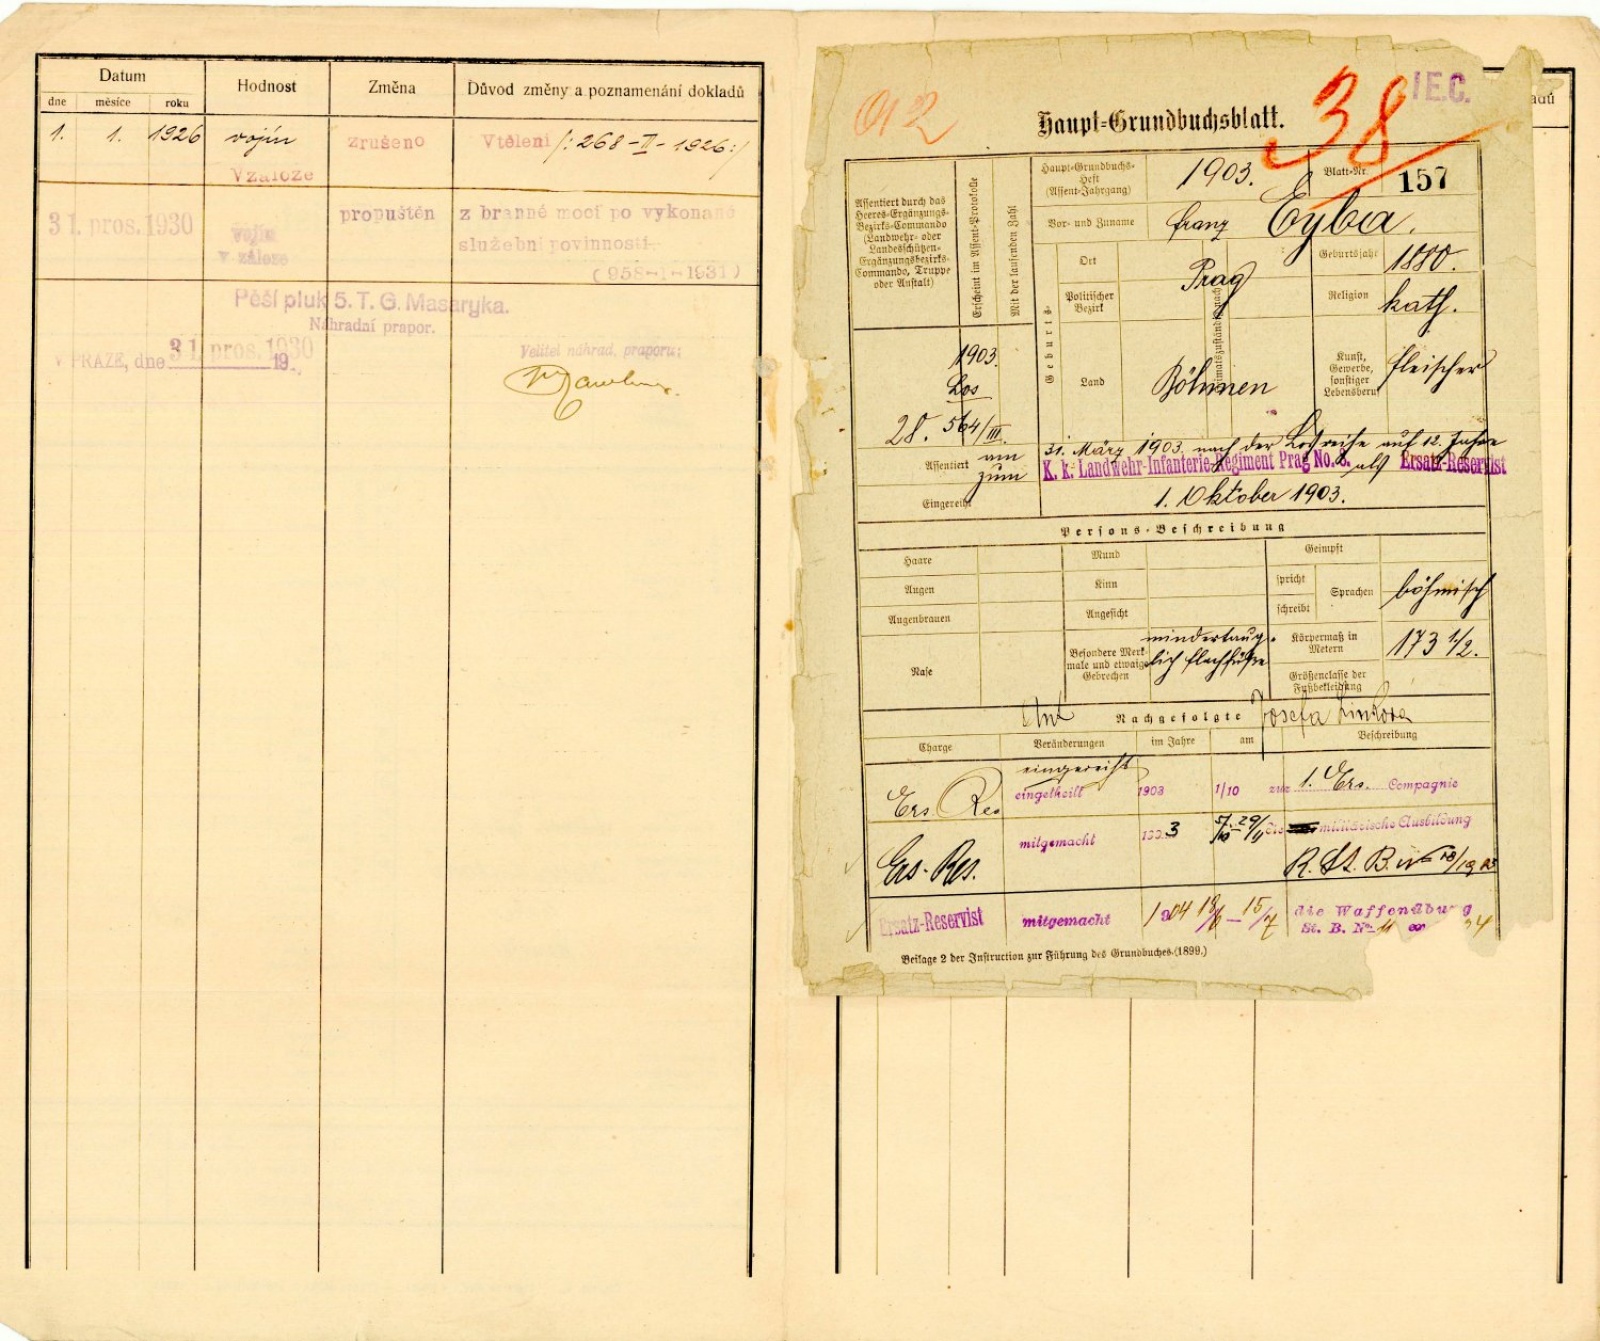 Datum
Hodnost
Změna
Důvod změny a poznamenání dokladů
dne měsíce roku
1. 1. 1926 vojín zrušeno Vtělení /: 268-II-1926 :/
V záloze
31. pros. 1930 vojín propuštěn z branné moci po vykonané
v záloze služební povinnosti.
(958-I-1931)
Pěší pluk 5. T. G. Masaryka.
Náhradní prapor.
V PRAZE, dne 31. pros. 1930 19
Velitel náhrad. praporu:
912
38
I E.C.
Haupt-Grundbuchsblatt.
Assentiert durch das
Heeres-Ergänzungs-
Bezirks-Commando
(Landwehr- oder
Landesschützen-
Ergänzungsbezirks-
Commando, Truppe
oder Anstalt)
Erscheint im Assent-Protokolle
Mit der laufenden Zahl
Haupt-Grundbuchs-
Heft
(Assent-Jahrgang)
1903.
Blatt-Nr.
157
Vor- und Zuname
Franz Eyba.
Geburts-
Ort
Prag
Geburtsjahr
1880.
Politischer
Bezirk
Religion
kath.
Land
Böhmen
Kunst,
Gewerbe,
sonstiger
Lebensberuf
Fleischer
1903.
Los
28. 564/III.
Assentiert am 31. März 1903. nach der Losreihe auf 12. Jahre
zum K. k. Landwehr-Infanterie-Regiment Prag No. 8. als Ersatz-Reservist
Eingereiht 1. Oktober 1903.
Persons-Beschreibung
Haare
Mund
Geimpft
Augen
Kinn
spricht
Sprachen
böhmisch
Augenbrauen
Angesicht
schreibt
Nase
Besondere Merk-
male und etwaige
Gebrechen
mindertaug-
lich Flachfüße
Körpermaß in
Metern
173 1/2.
Größenclasse der
Fußbekleidung
Nachgefolgte
Josefa
Charge Veränderungen im Jahre am Beschreibung
eingereiht
Ers. Res. eingetheilt 1903 1/10 zur 1. Ers. Compagnie
mitgemacht 1903 die militärische Ausbildung
Ers. Res.
Ersatz-Reservist mitgemacht 1904 18/6 – 15/7 die Waffenübung
St. B. No 11
Beilage 2 der Instruction zur Führung des Grundbuches.(1899.)